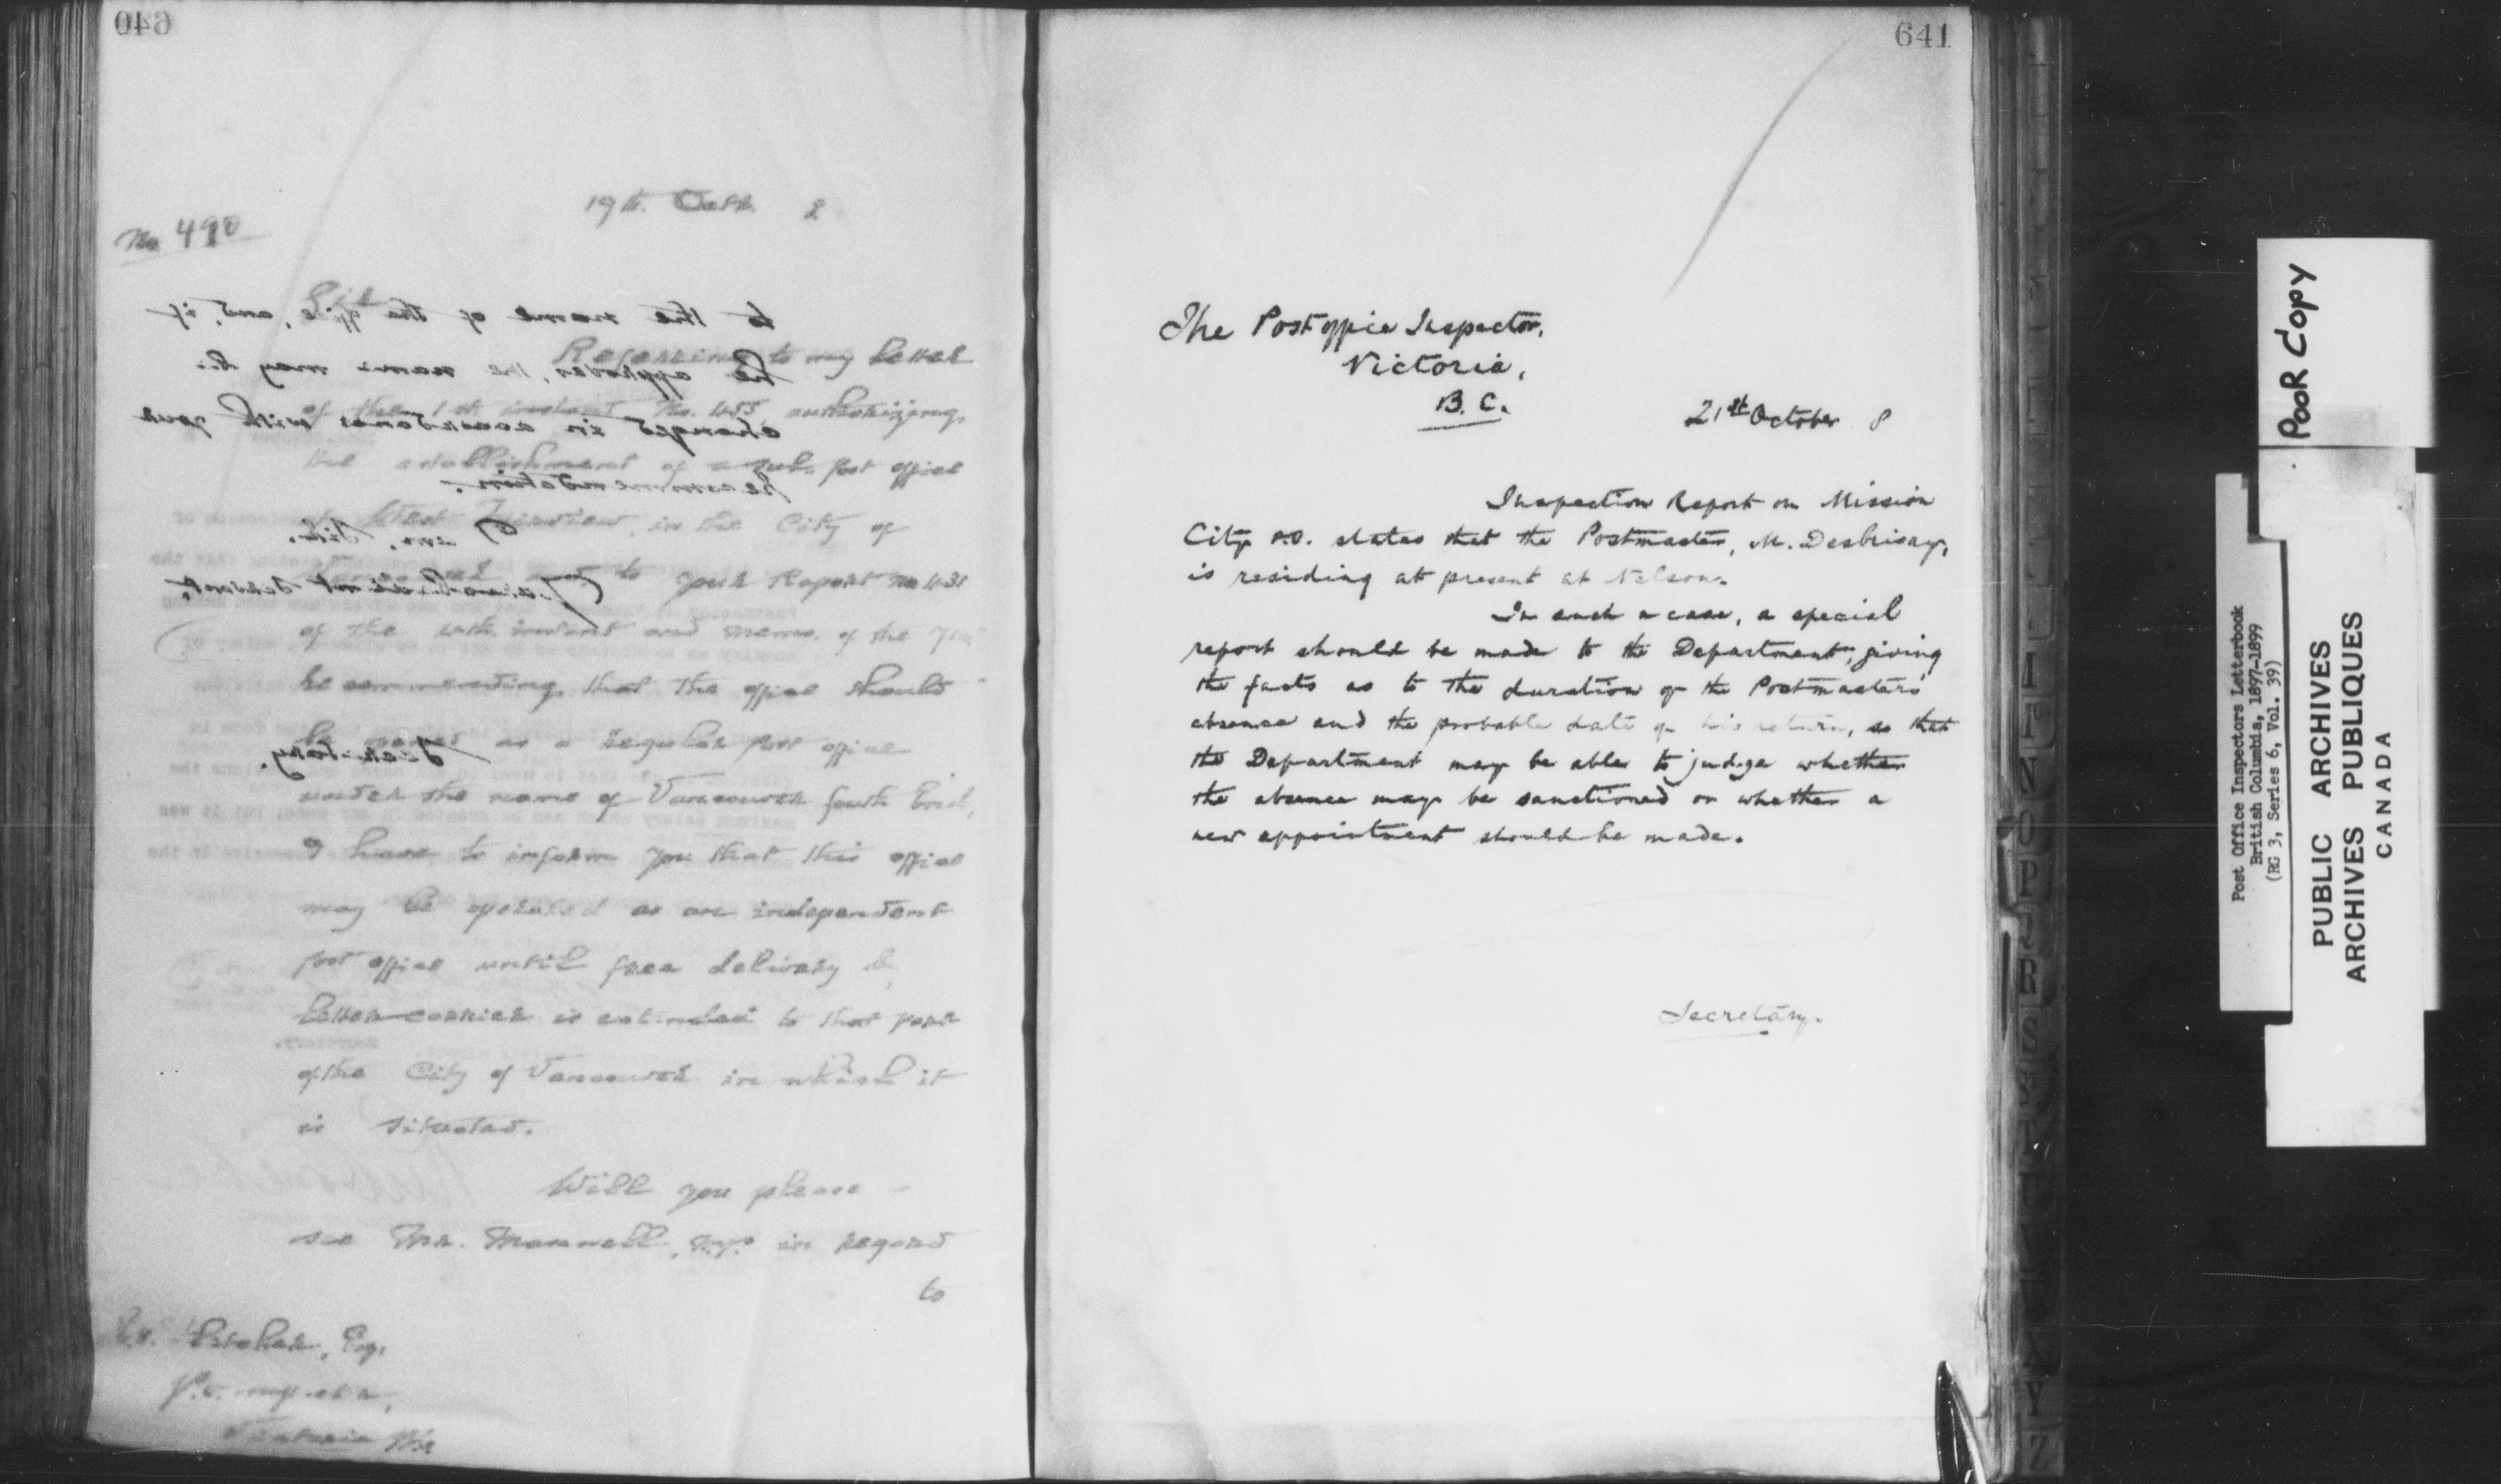 640
19th. Octr. 8
No 490
Sir
Referring to my letter
of the 1st. instant No. 455 authorizing
the establishment of a sub. post office
at West Fairview, in the City of
Vancouver and to your Report No 431
of the instant and memo. of the
recommending that the office should
be opened as a regular post office
under the name of Vancouver South End,
I have to inform you that this office
may be operated as an independent
post office until free delivery by
letter carrier is extended to that part
of the City of Vancouver in which it
is situated.
Will you please
see Mr. Maxwell, M.P. in regard
to
Fletcher, Esq.
P.O. Inspector,
Victoria BC
to the name of the office, and, if
he approves, the name may be
changed in accordance with your
recommendation.
I am, Sir,
Your obedient servant,
Secretary.
641
The Post office Inspector,
Victoria,
B. C.
21st October 8
Inspection Report on Mission
City P.O. states that the Postmaster, M. Desbrisay,
is residing at present at Nelson.
In such a case, a special
report should be made to the Department, giving
the facts as to the duration of the Postmasters'
absence and the probable date of his return, so that
the Department may be able to judge whether
the absence may be sanctioned or whether a
new appointment should be made.
Secretary.
I
N
O
P
R
S
Y
Z
POOR COPY
Post Office Inspectors Letterbook
British Columbia, 1897-1899
(RG 3, Series 6, Vol. 39)
PUBLIC ARCHIVES
ARCHIVES PUBLIQUES
CANADA